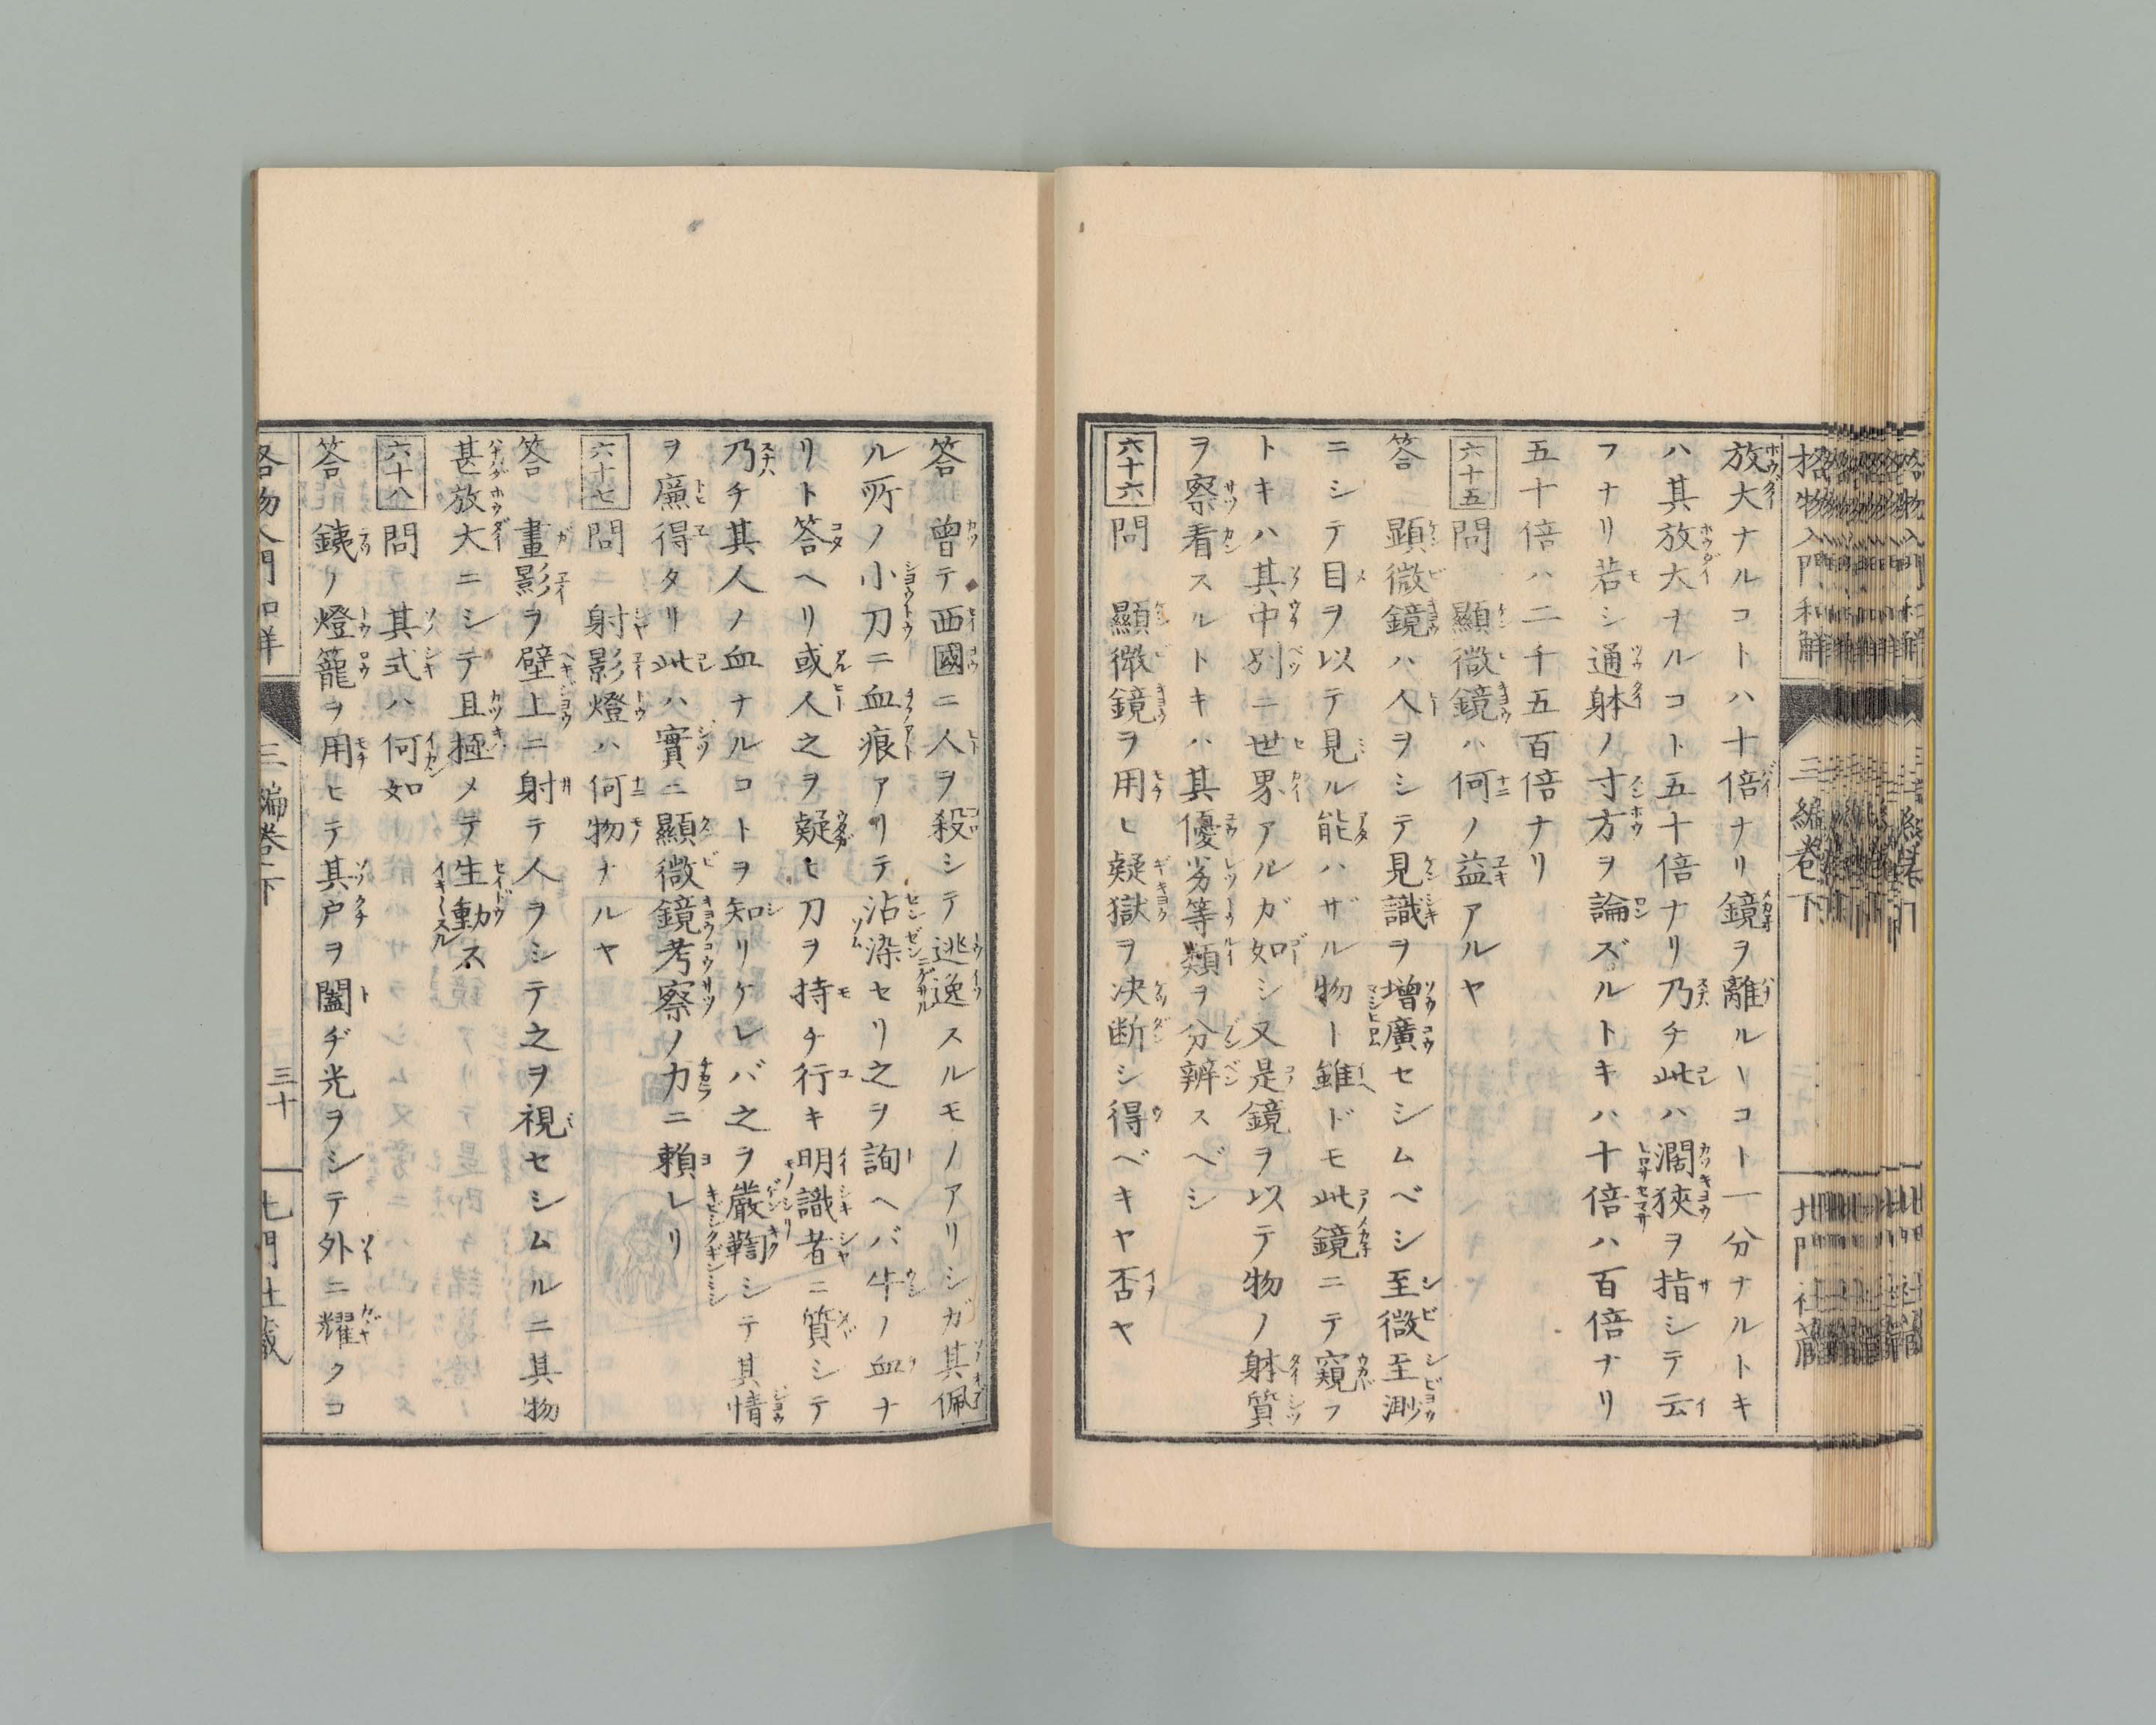 格物入門和解 三編卷下 北門社藏
放大ナルコトハ十倍ナリ鏡ヲ離ルヽコト一分ナルトキ
ハ其放大ナルコト五十倍ナリ乃チ此ハ濶狹ヲ指シテ云
フナリ若シ通躰ノ寸方ヲ論ズルトキハ十倍ハ百倍ナリ
五十倍ハ二千五百倍ナリ
六十五 問 顯微鏡ハ何ノ益アルヤ
答 顯微鏡ハ人ヲシテ見識ヲ增廣セシムベシ至微至渺
ニシテ目ヲ以テ見ル能ハザル物ト雖ドモ此鏡ニテ窺フ
トキハ其中別ニ世界アルガ如シ又是鏡ヲ以テ物ノ躰質
ヲ察看スルトキハ其優劣等類ヲ分辨スベシ
六十六 問 顯微鏡ヲ用ヒ疑獄ヲ决断シ得ベキヤ否ヤ
答 曾テ西國ニ人ヲ殺シテ逃逸スルモノアリシガ其佩
ル所ノ小刀ニ血痕アリテ沾染セリ之ヲ詢ヘバ牛ノ血ナ
リト答ヘリ或人之ヲ疑ヒ刀ヲ持チ行キ明識者ニ質シテ
乃チ其人ノ血ナルコトヲ知リケレバ之ヲ嚴鞫シテ其情
ヲ廉得タリ此ハ實ニ顯微鏡考察ノ力ニ賴レリ
六十七 問 射影燈ハ何物ナルヤ
答 畫影ヲ壁上ニ射テ人ヲシテ之ヲ視セシムルニ其物
甚放大ニシテ且極メテ生動ス
六十八 問 其式ハ何如
答 銕ノ燈籠ヲ用ヒテ其戸ヲ闔ヂ光ヲシテ外ニ耀クコ
格物入門和解 三編卷下 三十 北門社藏